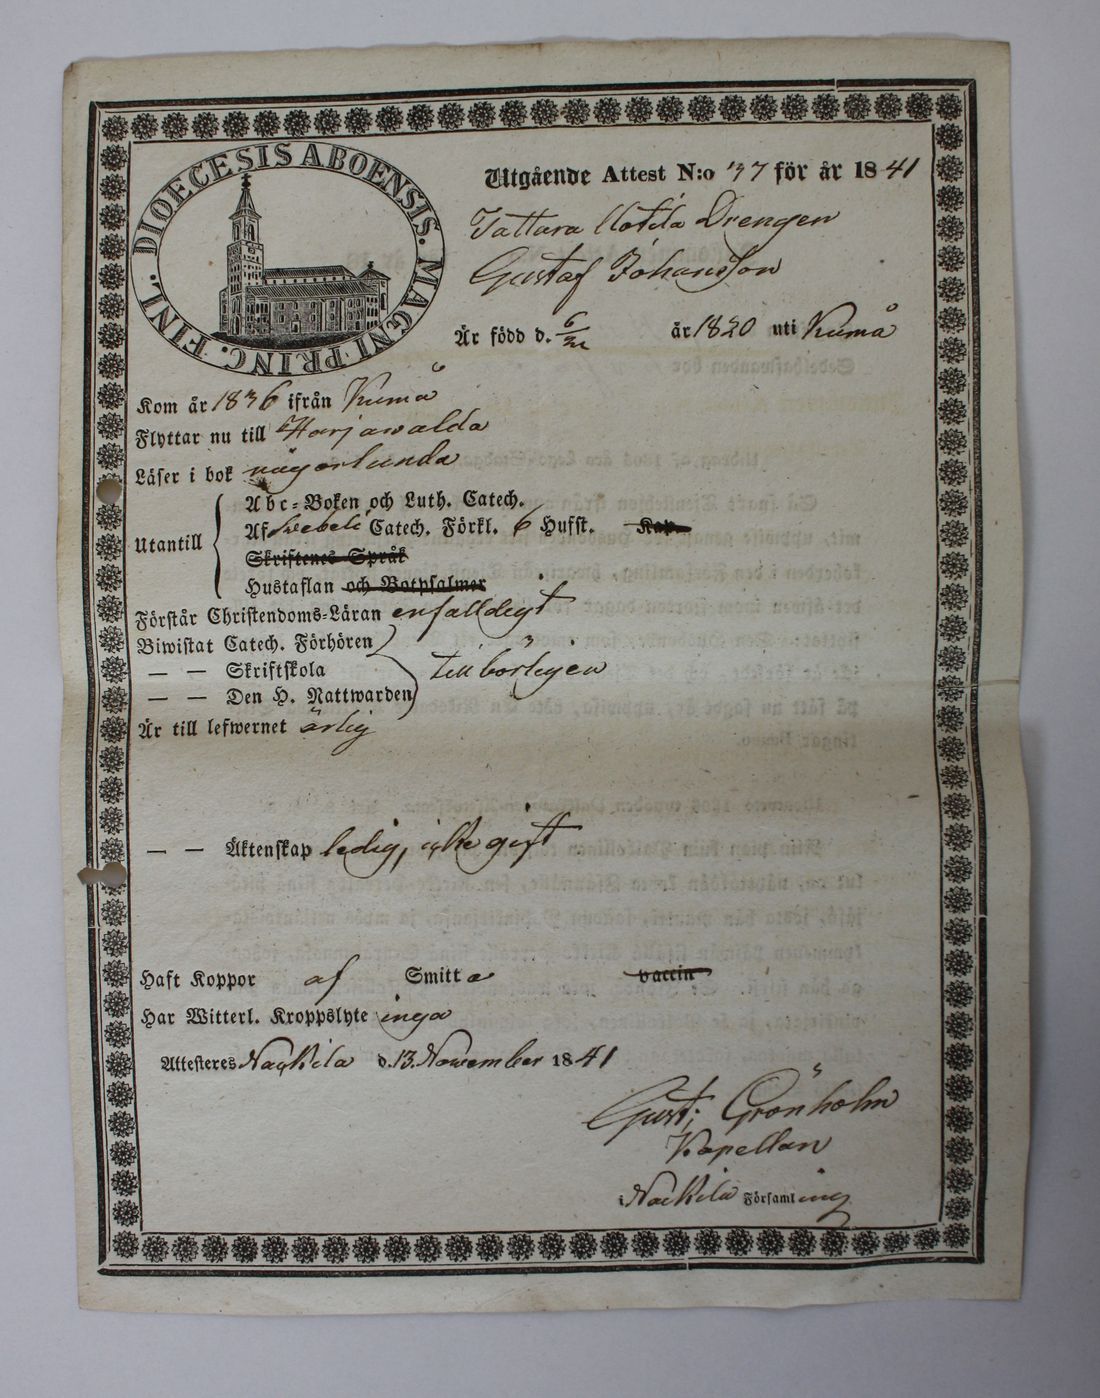 DIOECESIS ABOENSIS. MAGNI PRINC. FINL.
Utgående Attest N:o 37 för år 1841
Tattara Drengen
Gustaf Johansson
Är född d. 6/ år 1820 uti Kumå
Kom år 1836 ifrån Kumå
Flyttar nu till Harjawalda
Läser i bok någorlunda
Abc-Boken och Luth. Catech.
Utantill Af Svebeli Catech. Förkl. 6 Hufst. Kap.
Skriftenes Språk
Hustaflan och Botpsalmer
Förstår Christendoms-Läran enfalldigt
Biwistat Catech. Förhören
— — Skriftskola till börligen
— — Den H. Nattwarden
Är till lefwernet ärlig
— — Äktenskap ledig, icke gift
Haft Koppor af Smitta vaccin
Har Witterl. Kroppslyte inga
Attesteres Nackila d. 13. Nowember 1841
Gust: Grönholm
Kapellan
i Nackila Församling